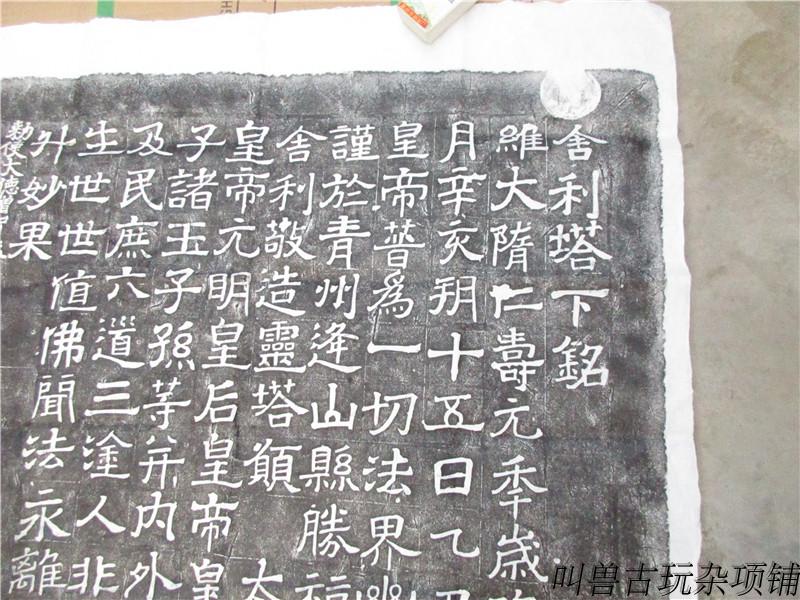 舍利塔下銘
維大隋仁壽元秊歲
月辛亥朔十五日乙
皇帝普為一切法界幽
謹於青州逄山縣勝福
舍利敬造靈塔願 太
皇帝元明皇后皇帝皇
子諸王子孫等并内外
及民庶六道三塗人非
生世世值佛聞法永離
升妙果
勅使大德僧
叫兽古玩杂项铺